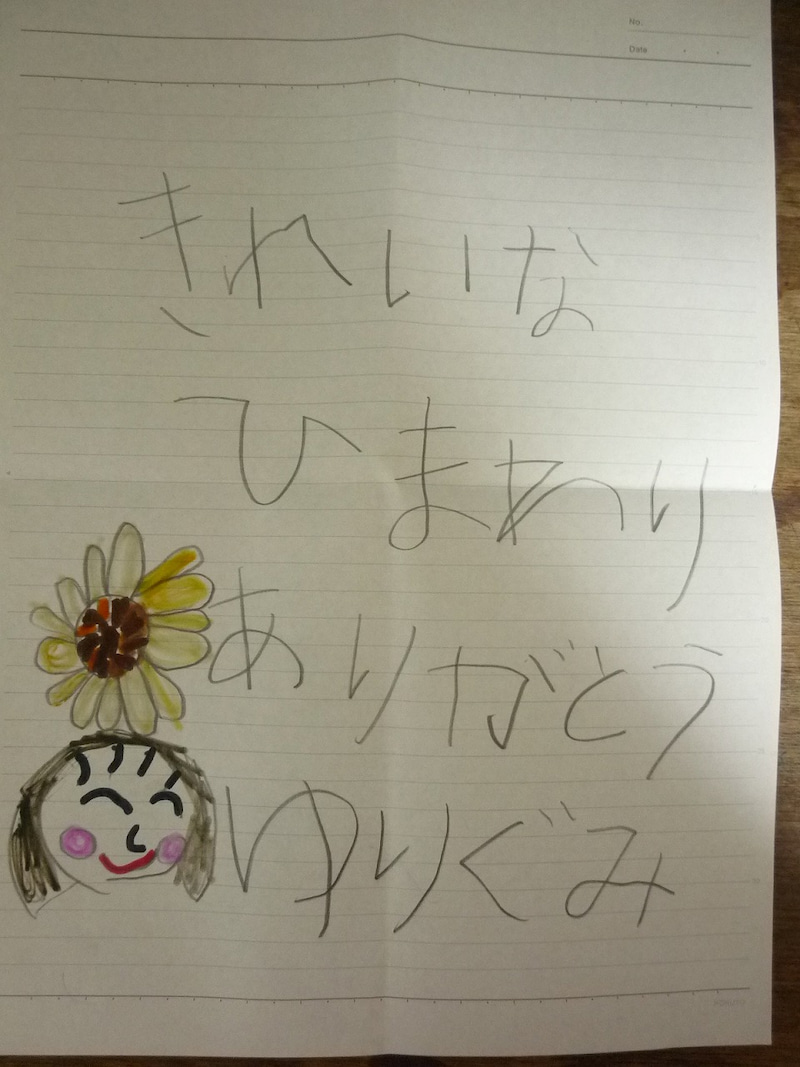 No.
Date
きれいな
ひまわり
ありがとう
ゆりぐみ